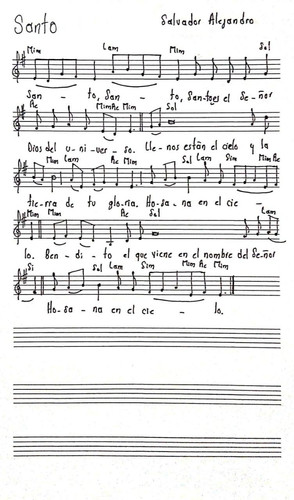 Santo
Salvador Alejandro
Mim Lam Mim Sol
San- to, San- to, Santo es el Señor
Re MimRe Mim Sol
Dios del u-ni-ver-so. Llenos están el cielo y la
Mim Lam Mim Sol Lam Sim MimRe
tierra de tu gloria. Ho-sa-na en el cie-
Mim Mim Re Sol Lam
lo. Ben-di-to el que viene en el nombre del Señor
Si Sol Lam Sim Mim Re Mim
Ho-sa-na en el cie - lo.